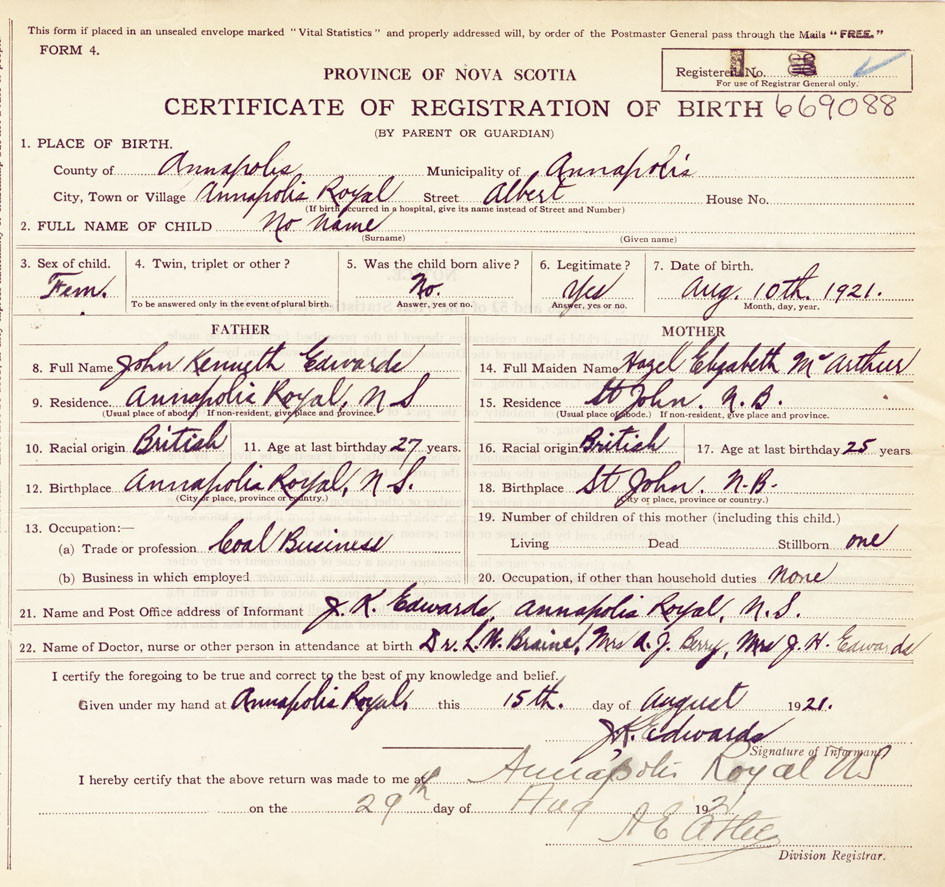 This form if placed in an unsealed envelope marked "Vital Statistics" and properly addressed will, by order of the Postmaster General pass through the Mails "FREE."
FORM 4.
Registered No.
For use of Registrar General only.
PROVINCE OF NOVA SCOTIA
CERTIFICATE OF REGISTRATION OF BIRTH 669088
(BY PARENT OR GUARDIAN)
1. PLACE OF BIRTH.
County of Annapolis Municipality of Annapolis
City, Town or Village Annapolis Royal Street Albert House No.
(If birth occurred in a hospital, give its name instead of Street and Number)
2. FULL NAME OF CHILD No Name
(Surname) (Given name)
3. Sex of child. 4. Twin, triplet or other? 5. Was the child born alive? 6. Legitimate? 7. Date of birth.
Fem. No. Yes Aug. 10th. 1921.
To be answered only in the event of plural birth. Answer, yes or no. Answer, yes or no. Month, day, year.
FATHER MOTHER
8. Full Name John Kenneth Edwards 14. Full Maiden Name Hazel Elizabeth McArthur
9. Residence. Annapolis Royal, N S 15. Residence St John. N.B.
(Usual place of abode) If non-resident, give place and province. (Usual place of abode.) If non-resident, give place and province.
10. Racial origin British 11. Age at last birthday 27 years. 16. Racial origin British 17. Age at last birthday 25 years.
12. Birthplace Annapolis Royal, N S. 18. Birthplace St John. N.B.
(City or place, province or country.) (City or place, province or country.)
13. Occupation:— 19. Number of children of this mother (including this child.)
(a) Trade or profession Coal Business Living Dead Stillborn one
(b) Business in which employed 20. Occupation, if other than household duties None
21. Name and Post Office address of Informant J. K. Edwards, Annapolis Royal, N.S.
22. Name of Doctor, nurse or other person in attendance at birth Dr. L. W. Braine, Mrs A. J. Berry, Mrs J. H. Edwards
I certify the foregoing to be true and correct to the best of my knowledge and belief.
Given under my hand at Annapolis Royal, this 15th. day of August 1921.
J.K. Edwards
Signature of Informant
I hereby certify that the above return was made to me at Annapolis Royal NS
on the 29th day of Aug 192
Division Registrar.